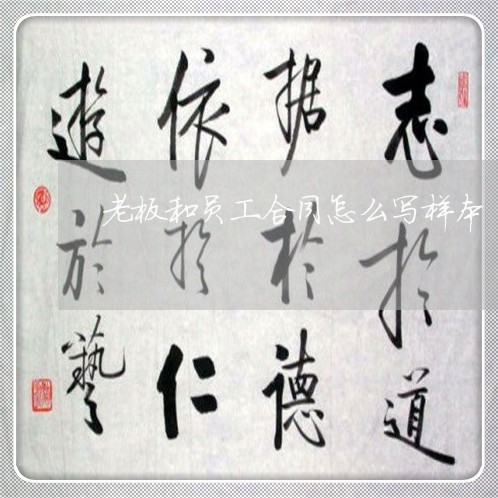 志於道
据於德
依於仁
遊於藝
老板和员工合同怎么写样本